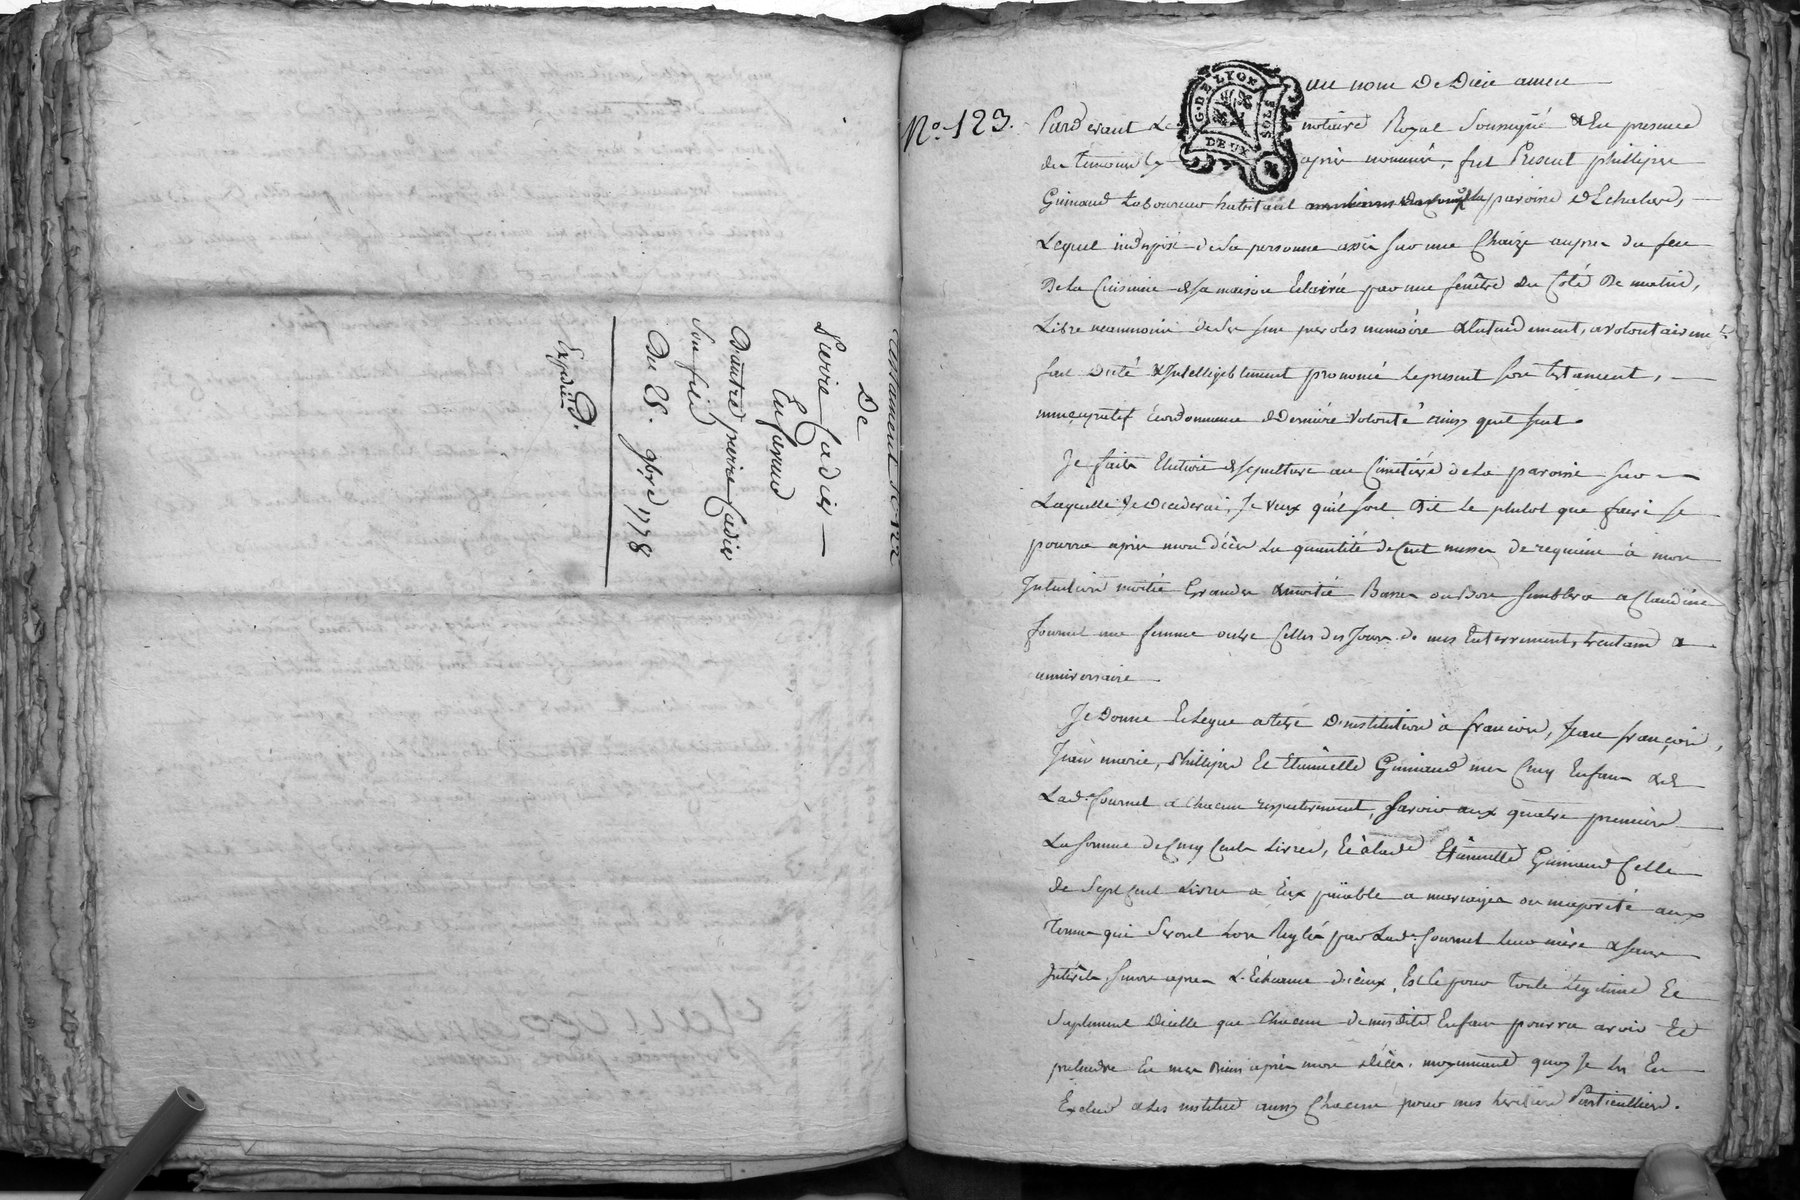 Testament № 122
De
Pierre Cadier
En faveur
D'autre pierre Cadier
Son fils
Du 25. 9bre 1778.
Expédié
G. DE LYON
DEUX SOLS
au nom De Dieu amen
№ 123. Pardevant Le notaire Royal Soussigné & En presence
des temoins Cy après nommés, fut Present phillippe
Guinand Laboureur habitant paroisse d'Echalas,
Lequel indisposé de Sa personne assis sur une Chaize aupres du feu
De la Cuisine de sa maison Eclairée par une fenêtre du Coté De matin,
Libre neanmoins de Ses sens paroles mémoire & Entendement, a volontairemt
fait Dicté & Intelligiblement prononcé le present son testament,
nuncupatif & ordonnance de Derniere Volonté ainsy quil suit.
Je faits Elution de sepulture au Cimetière de la paroisse sur
Laquelle Je Decederai, Je veux qu'il soit Dit le plutot que faire se
pourra après mon décès La quantité de Cent messes de requiem à mon
Intention moitié Grandes & moitié Basses ou Bon semblera a Claudine
fournel ma femme outre Celles des Jours de mes Enterrement, trentaine &
anniversaire
Je Donne Et Legue a titre D'institution à francois, Jean françois,
Jean marie, Phillippe Et Etiennette Guinand mes Cinq Enfans & de
Lad.e fournel a Chacun respectivement, savoir aux quatre premiers
La somme de Cinq Cents Livres, Et à lade Etiennette Guinand Celle
de Sept Cent Livres a Eux païable a mariages ou majorité aux
termes qui Seront Lors Reglés par Lad.e fournel leur mère & sans
Intérêts sinon apres L'Echeance d'iceux, Et Ce pour toute Legitime Et
Suplement D'icelle que Chacun de mesdits Enfans pourra avoir Et
pretendre En mes Biens après mon décès, moyennant quoy Je les En
Exclus & Les institue ainsy Chacun pour mes heritiers Particulliers.